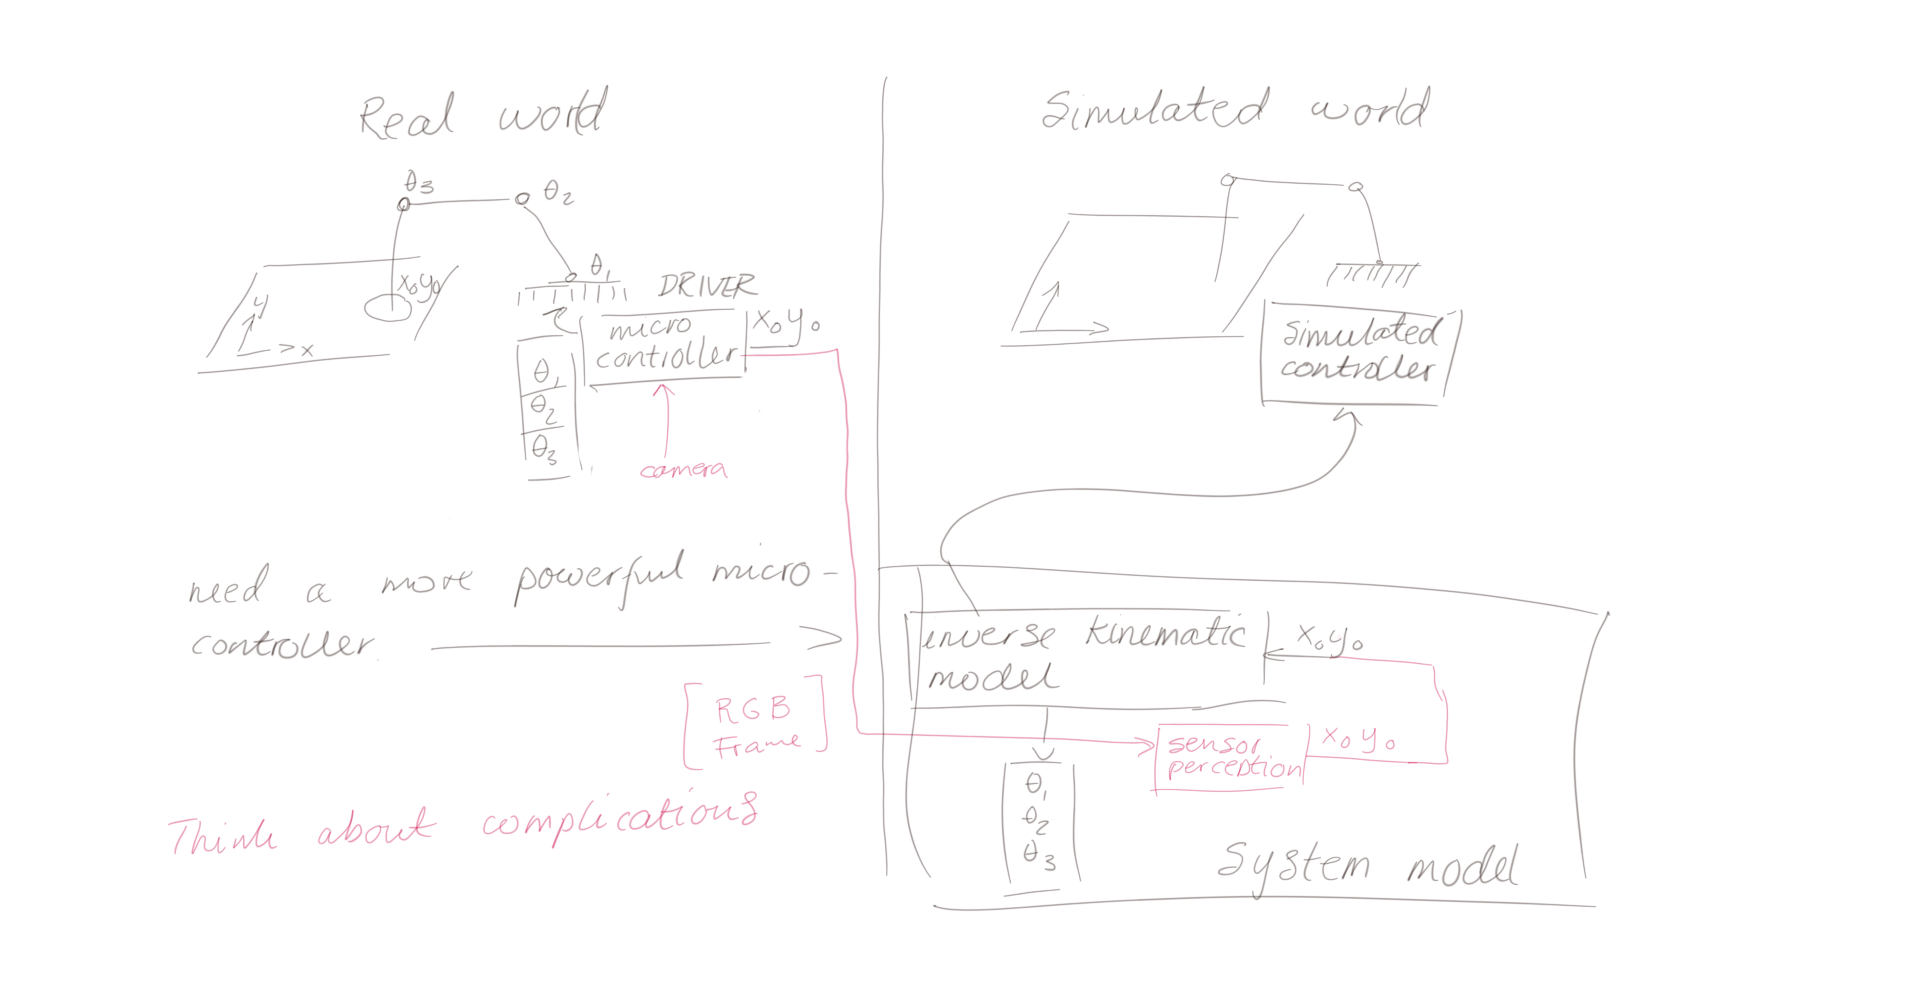 Real world
θ3
θ2
θ1
x0y0
y
x
DRIVER
micro
controller
x0 y0
θ1
θ2
θ3
camera
need a more powerful micro-
controller
[RGB
Frame]
Think about complications
Simulated world
simulated
controller
inverse kinematic
model
x0y0
sensor
perception
x0 y0
θ1
θ2
θ3
System model